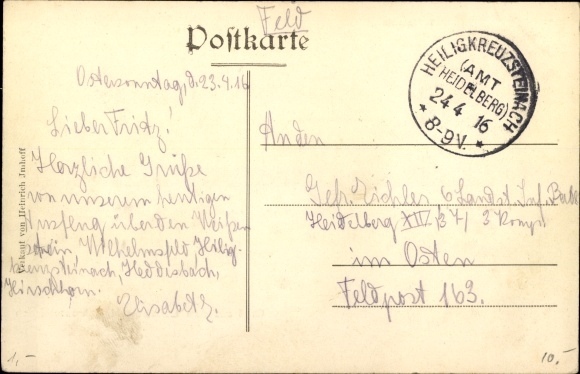 Feld
Postkarte
Ostersonntag, d. 23.4.16
Lieber Fritz!
Herzliche Grüße
von unserem heutigen
Ausflug über den Weißen
stein Wilhelmsfeld Heilig-
kreuzsteinach, Heddesbach,
Hirschhorn.
Elisabeth.
Verkauf von Heinrich Imhoff
HEILIGKREUZSTEINACH
(AMT
HEIDELBERG)
24 4 16
* 8-9V. *
An den
Gefr. 6 Landst. Inf.
Heidelberg XIV, 37, 3 Komp.
im Osten
Feldpost 163.
1,-
10,-